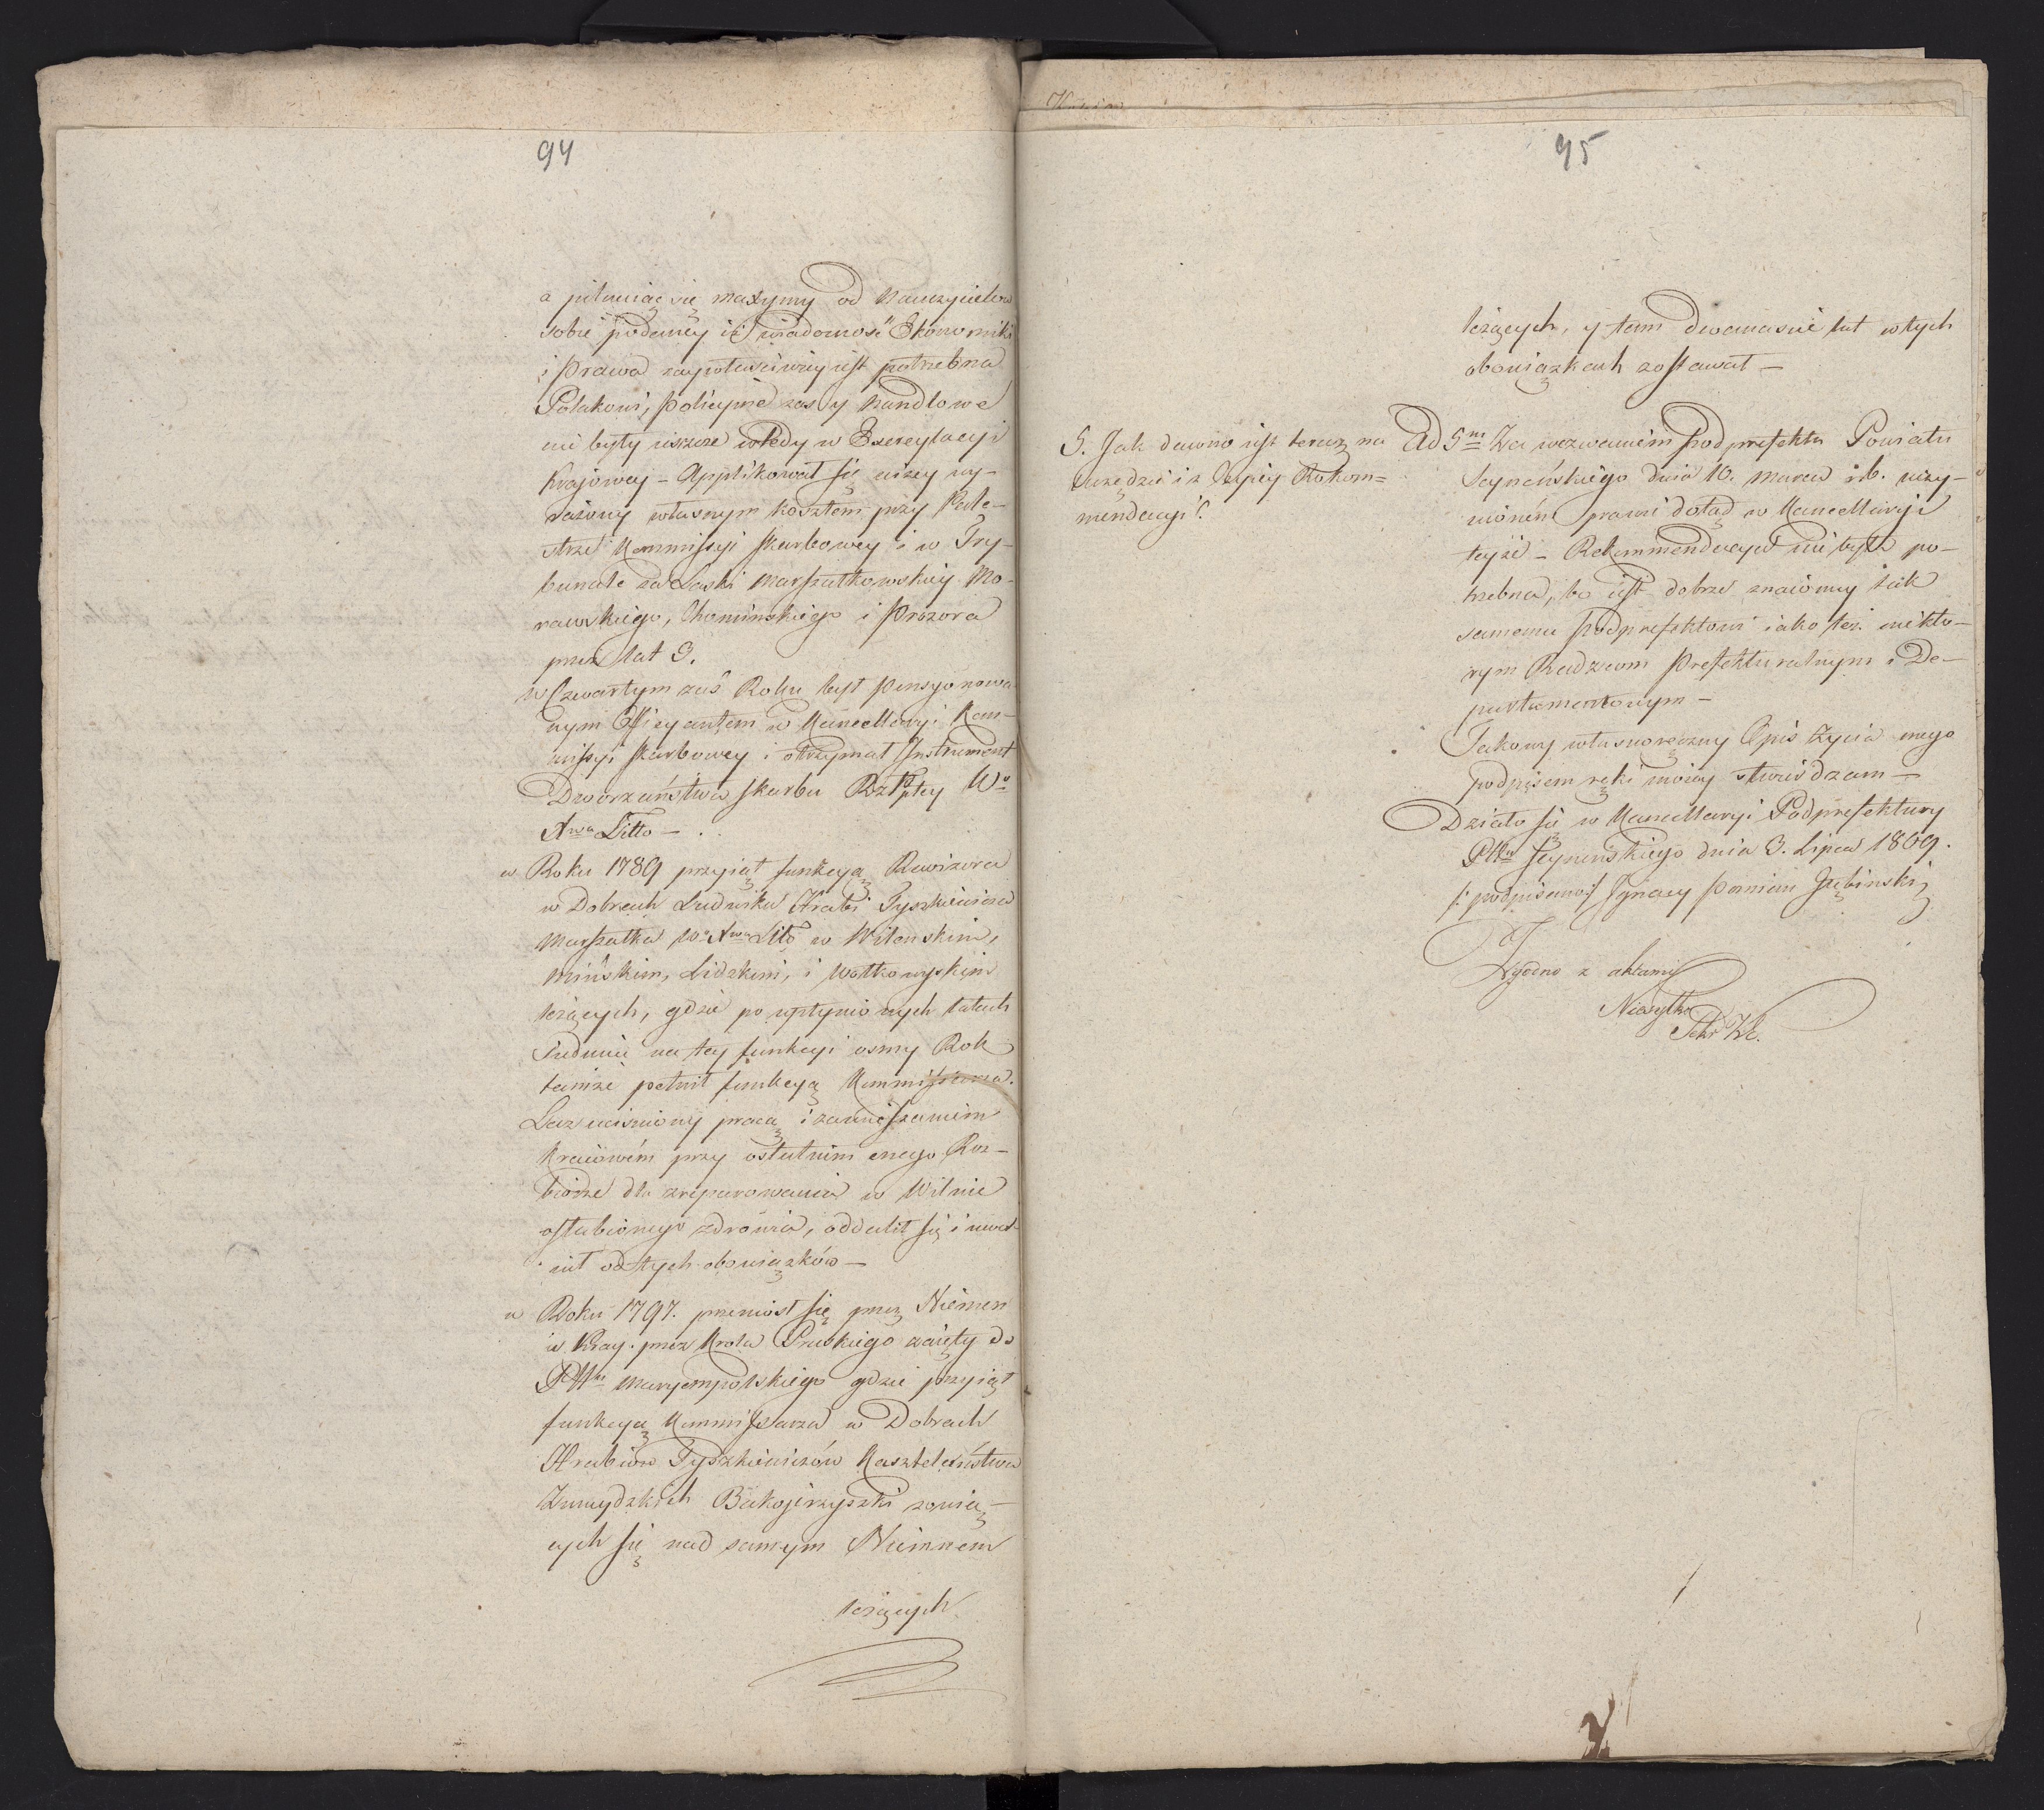 94
a pilnuiąc się maxymy od Nauczycielow
sobie podaney iż wiadomość Ekonomiki
i Prawa naywłaściwiey iest potrzebna
Polakowi, policyine zaś y handlowe
nie były ieszcze wtedy w Exercytacyi
Krajowey – Applikował się wyżey wy-
rażony własnym kosztem przy Pale-
strze Kommissyi Skarbowey i w Try-
bunale za Laski Marszałkowskiey Mo-
rawskiego, Chomińskiego i Prozora
przez lat 3.
w Czwartym zaś Roku był pensyonowa-
nym Officyantem w Kancellaryi Kom-
missyi Skarbowey i otrzymał Instrument
Dworzaństwa Skarbu Rztpltey Wo
Xwa Litto –
w Roku 1789 przyiął funkcyą Rewizora
w Dobrach Ludwika Hrabi Tyszkiewicza
Marszałka Wo Xwa Litto w Wileńskim,
Mińskim, Lidzkim, i Wołkowyskim
leżących, gdzie po upłynionych latach
siedmiu na tey funkcyi osmy Rok
tamże pełnił funkcyą Kommissarza.
Lecz uciśniony pracą i zamieszaniem
kraiowém przy ostatnim onego Roz-
biorze dla zreparowania w Wilnie
osłabionego zdrowia, oddalił się i uwol-
nił od tych obowiązków –
w Roku 1797. przeniosł się przez Niemen
w Kray przez Krola Pruskiego zaięty do
Pttu Maryampolskiego gdzie przyiął
funkcyą Kommissarza w Dobrach
Hrabiow Tyszkiewiczów Kasztelaństwa
Zmuydzkich zowią-
cych się nad samym Niemnem
leżących
95
leżących, y tam dwanascie lat w tych
obowiązkach zostawał –
5. Jak dawno iest teraz na
Urzędzie i z czyiey Rekom=
mendacyi?
Ad 5m Za wezwaniem Podprefekta Powiatu
Seyneńskiego dnia 10. Marca r.b. uczy-
nioném prawi dotąd w Kancellaryi
teyże – Rekommendacya nie była po-
trzebna, bo iest dobrze znaiomy tak
samemu Podprefektowi iako też niekto-
rym Radzcom Prefekturalnym i De-
partamentowym –
Takowy własnoręczny Opis Zycia mego
podpisem ręki moiey stwierdzam –
Działo się w Kancellaryi Podprefektury
Pttu Seyneńskiego dnia 3. Lipca 1809.
/: podpisano :/ Ignacy Pomian
Zgodno z aktami